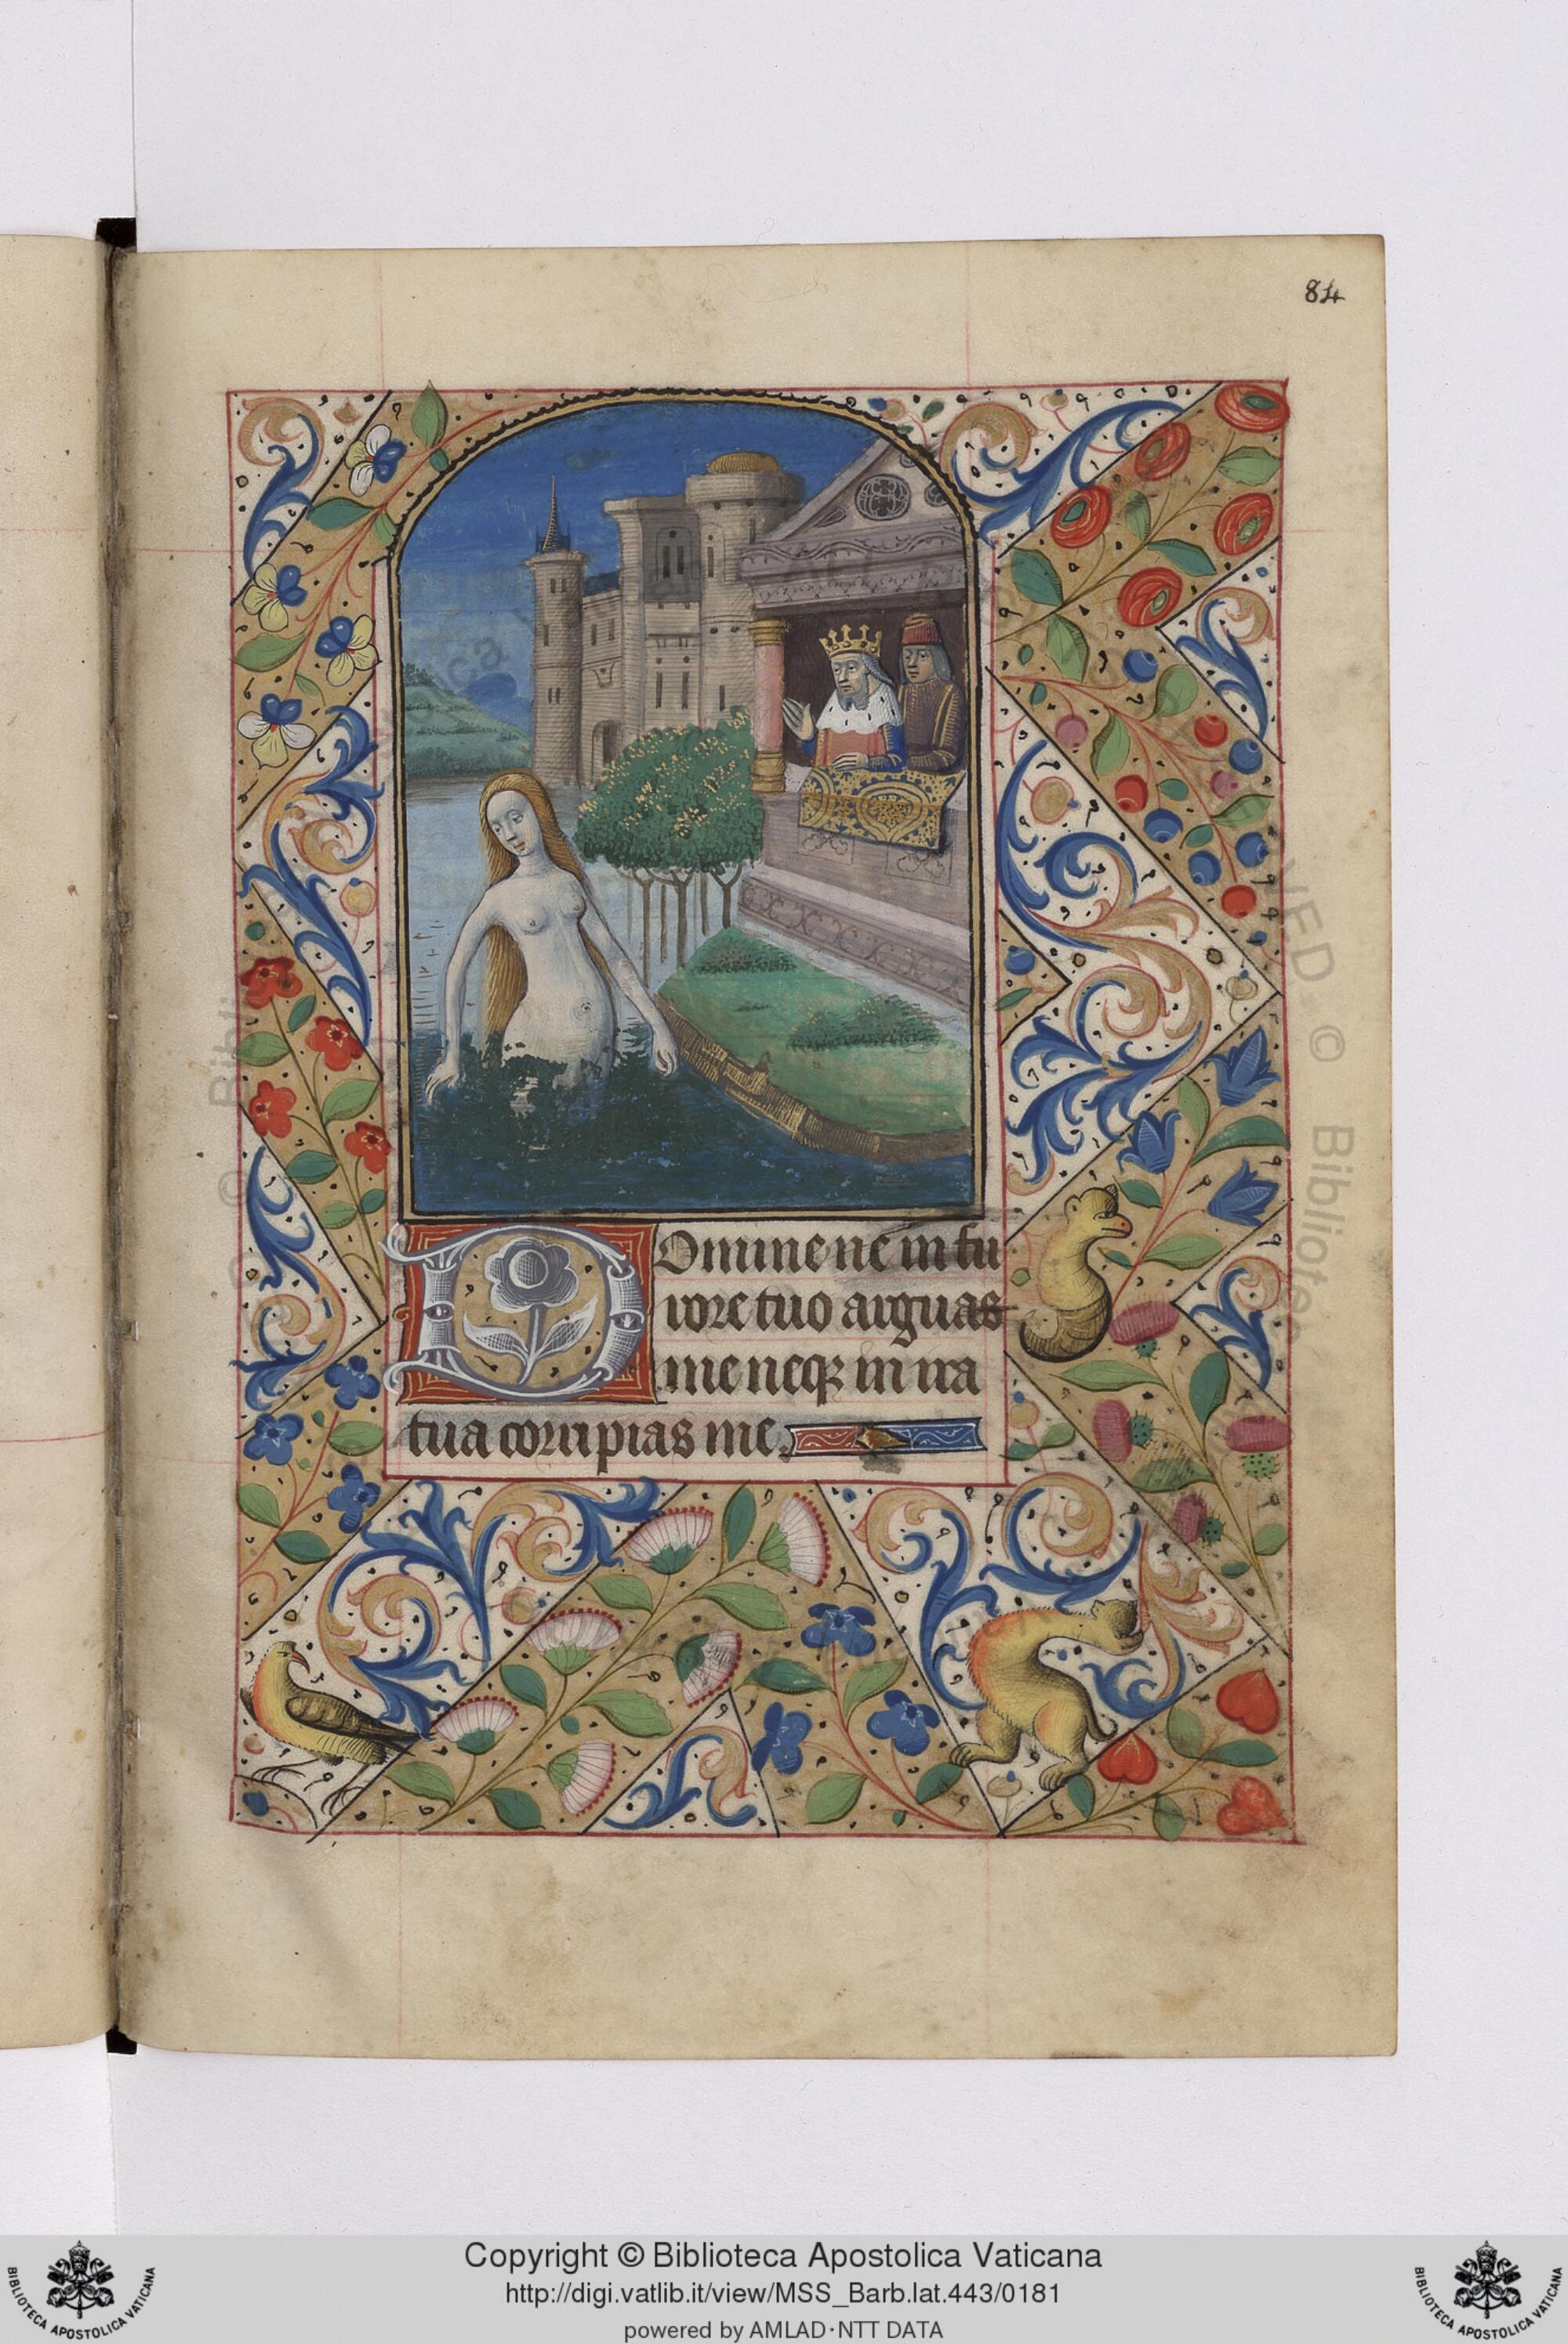 84
Domine ne in fu
rore tuo arguas
me neqꝫ in ira
tua corripias me.
Copyright © Biblioteca Apostolica Vaticana
http://digi.vatlib.it/view/MSS_Barb.lat.443/0181
powered by AMLAD·NTT DATA
BIBLIOTECA APOSTOLICA VATICANA
BIBLIOTECA APOSTOLICA VATICANA